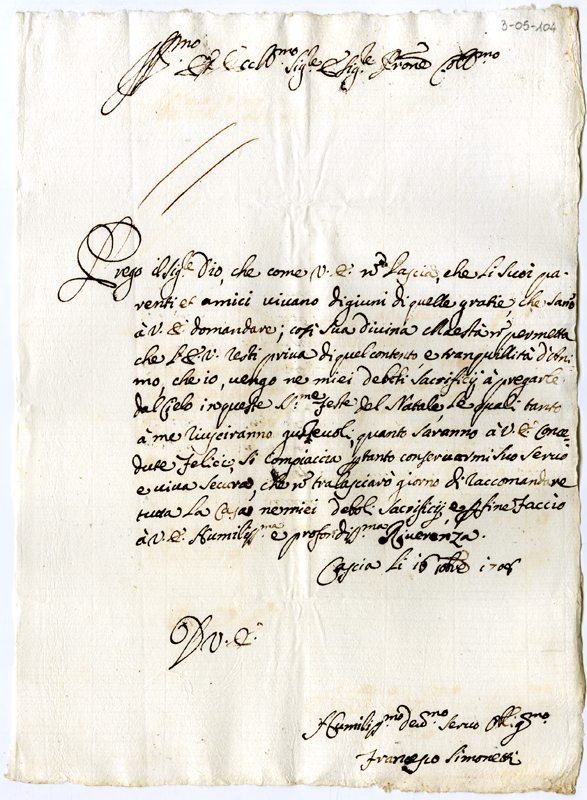 3-05-104
Ill.mo et Ecc.mo Sig.re e Sig.re P.rone Coll.mo
Prego il Sig.re Dio, che come V. E. n͂ lascia, che li suoi pa-
renti, et amici vivano digiuni di quelle gratie, che sanno
à V. E. domandare; così sua divina Maestà n͂ permetta
che l'E. V. resti priva di quel contento e tranquillità d'Ani-
mo, che io, vengo ne miei deboli sacrificij à pregarle
dal Cielo in queste S.me feste del Natale, le quali tanto
à me riusciranno gustevoli, quanto saranno à V. E. conce-
dute felici, si compiaccia p̱tanto conservarmi suo servo
e viva secura, che n͂ tralasciarò giorno di raccomandare
tutta la Casa ne miei deboli sacrificij, e p̱ fine faccio
à V. E. humiliss.ma e profondiss.ma Riverenza.
Cascia li 16 Xbre 1708
D V. E.
Humiliss.mo dev.mo servo obblig.mo
Francesco Simonetti